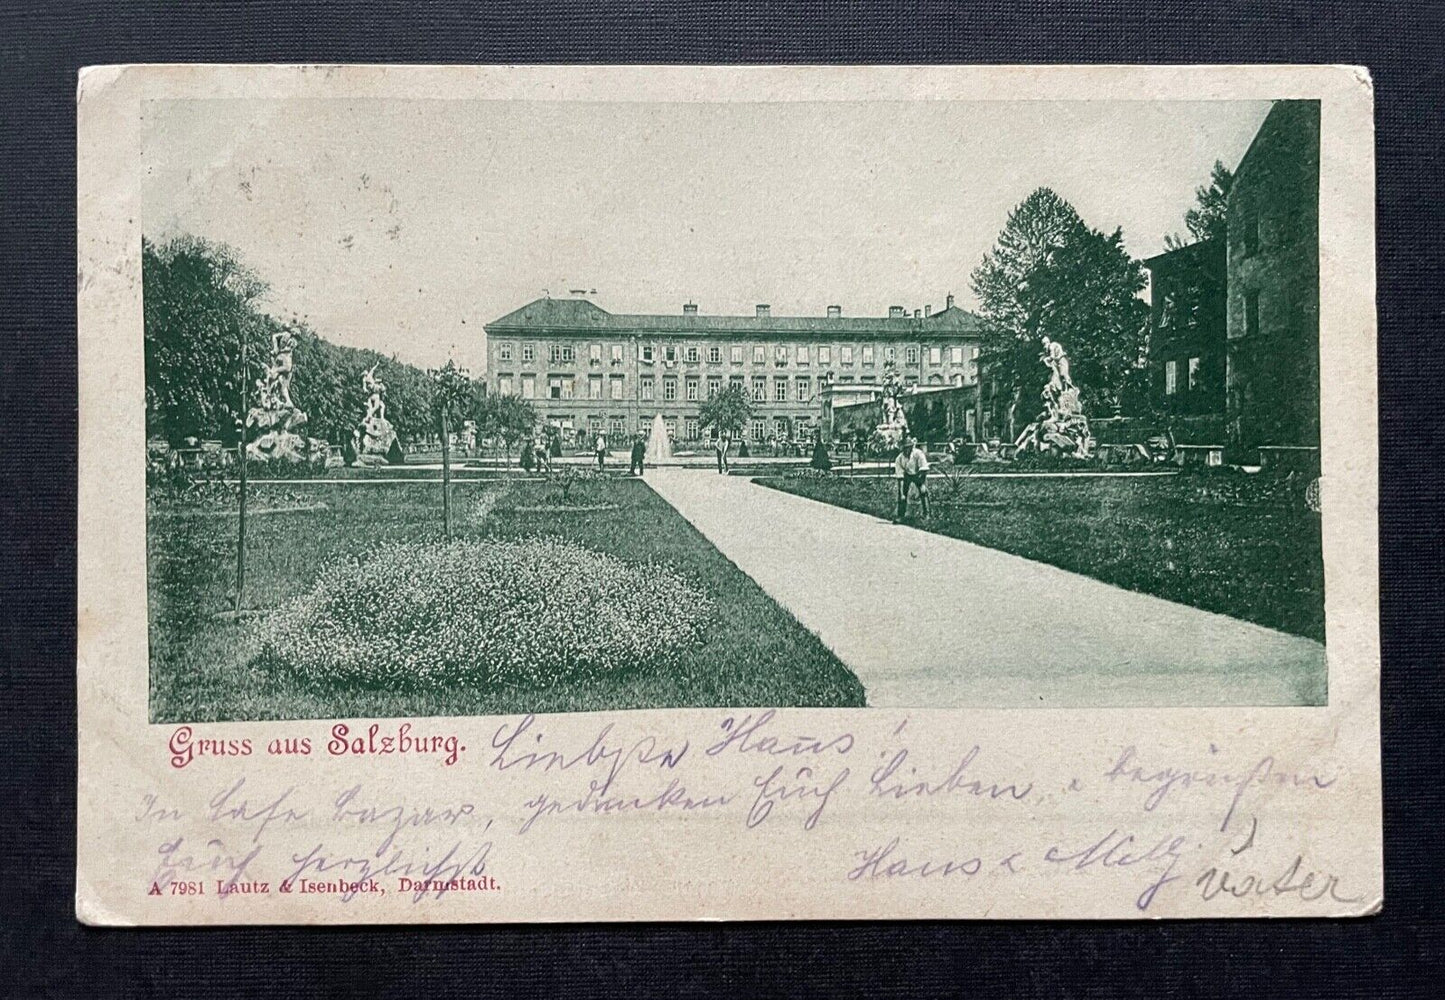 Gruss aus Salzburg.
Liebste Haus!
In Cafe Bazar, gedenken Euch Lieben, & begrüßen
Euch herzlichst
Haus &
Vater
A 7981 Lautz & Isenbeck, Darmstadt.